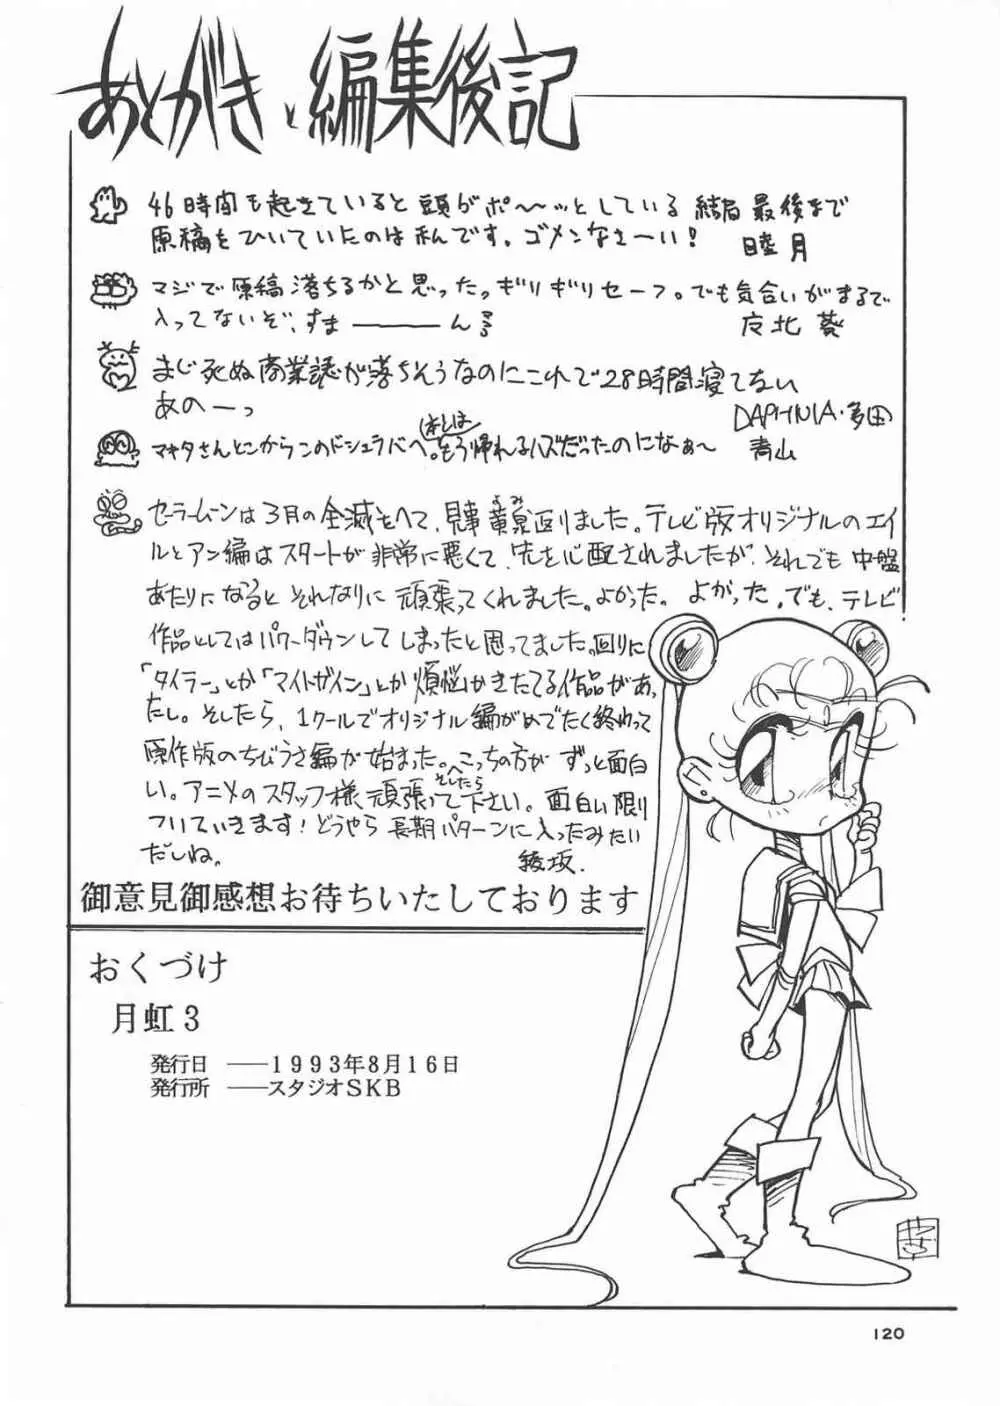 あとがきと編集後記
46時間も起きていると頭がポ〜〜ッとしている 結局最後まで
原稿をひいていたのは私です。ゴメンなさーい! 睦月
マジで原稿落ちるかと思ったっ ギリギリセーフ。でも気合いがまるで
入ってないぞ、すま────ん
北葵
まじ死ぬ 商業誌が落ちそうなのにこれで28時間寝てない
あのーっ DAPHNIA・多田
ほんとは
マキタさんとこからこのドシュラバへ。もう帰れるハズだったのになぁ〜 青山
セーラームーンは3月の全滅をへて、見事黄泉返りました。テレビ版オリジナルのエイ
よみ
ルとアン編はスタートが非常に悪くて、先を心配されましたが、それでも中盤
あたりになるとそれなりに頑張ってくれました。よかった。よかった。でも、テレビ
作品としてはパワーダウンしてしまったと思ってました。回りに
「タイラー」とか「マイトガイン」とか煩悩かきたてる作品があっ
たし。そしたら、1クールでオリジナル編がめでたく終わって
原作版のちびうさ編が始まった。へこっちの方がずっと面白
そしたら
い。アニメのスタッフ様、頑張って下さい。面白い限り
ついていきます!どうやら長期パターンに入ったみたい
だしね。 綾坂.
御意見御感想お待ちいたしております
おくづけ
月虹3
発行日 ──1993年8月16日
発行所 ──スタジオSKB
120